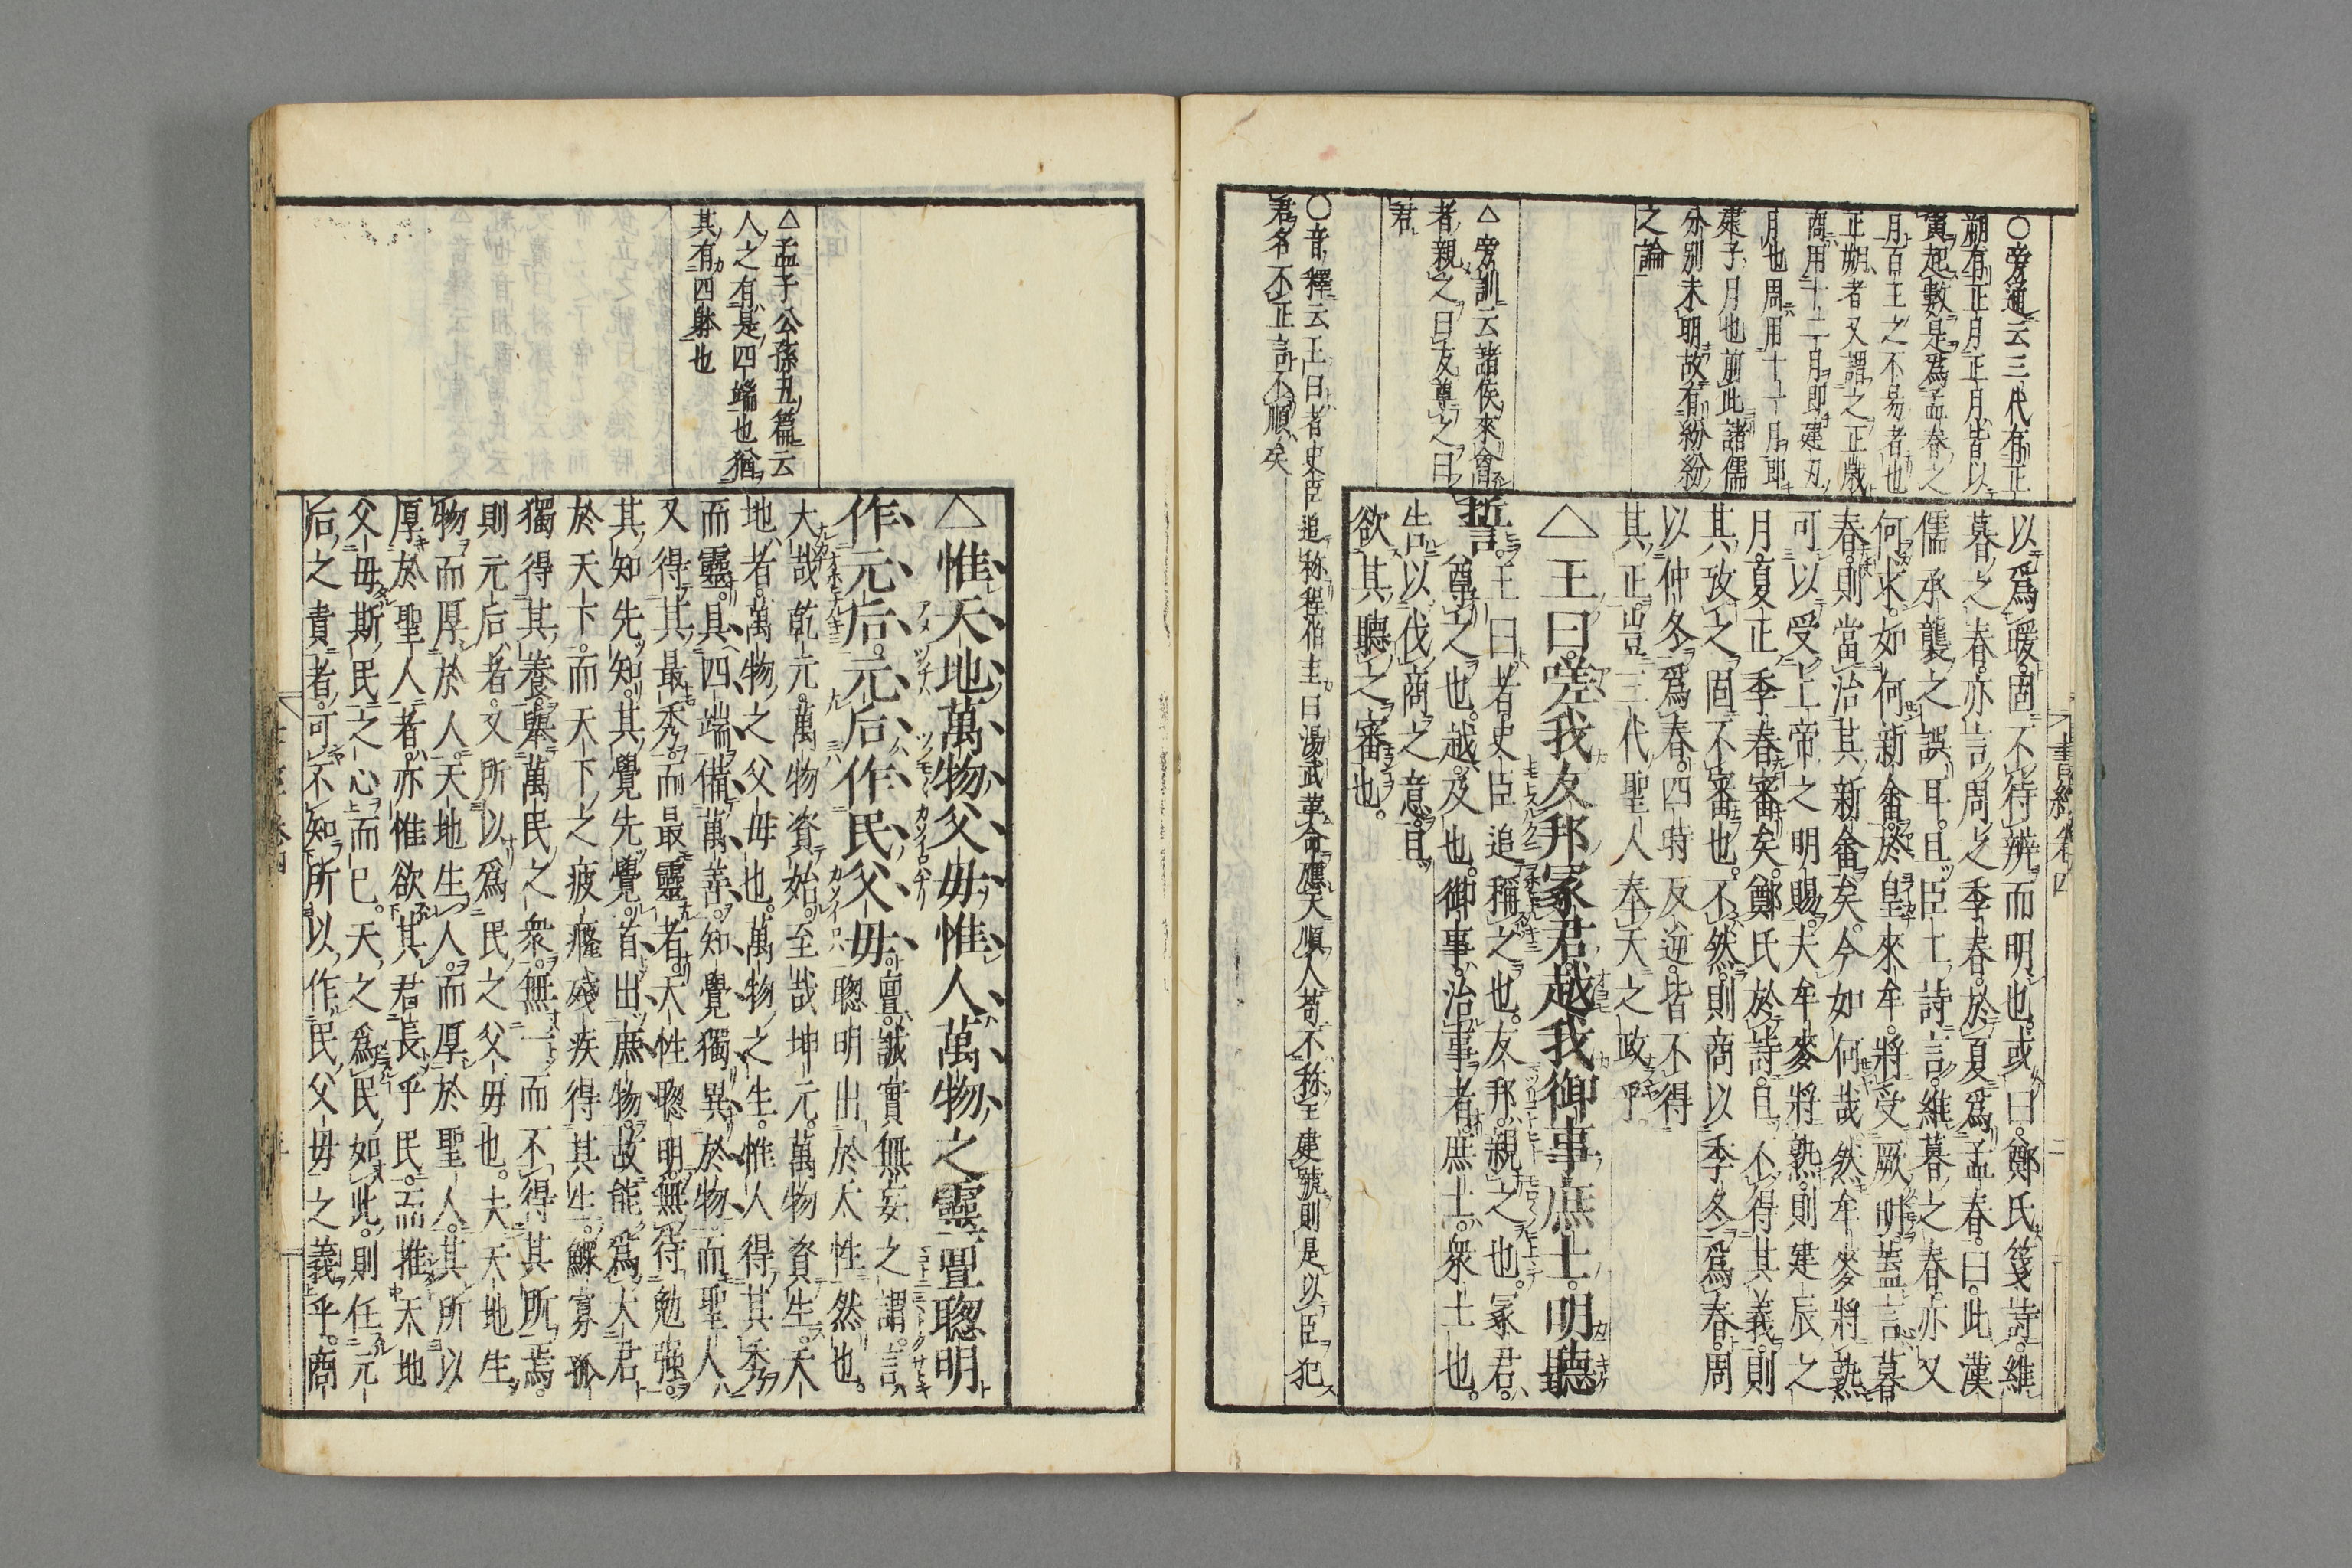 ○旁通云三代有正
朔有正月正月皆以
寅起數是爲孟春之
月百王之不易者也
正朔者又謂之正歲
商用十二月即建丑
月也周用十一月即
建子月也前此諸儒
分别未明故有紛紛
之論
△旁訓云諸侯來會
者親之曰友尊之曰
君
○音釋云王曰者史臣追称程伯圭曰湯武革命應天順人苟不称王建號則是以臣犯
君名不正言不順矣
以爲暖固不待辨而明也或曰鄭氏箋詩維
暮之春亦言周之季春於夏爲孟春曰此漢
儒承襲之誤耳且臣工詩言維暮之春亦又
何求如何新畬於皇來牟將受厥明蓋言暮
春則當治其新畬矣今如何哉然牟麥將熟
可以受上帝之明賜夫牟麥將熟則建辰之
月夏正季春審矣鄭氏於詩且不得其義則
其攷之固不審也不然則商以季冬爲春周
以仲冬爲春四時反逆皆不得
其正豈三代聖人奉天之政乎
△王曰嗟我友邦冢君越我御事庶士明聽
誓王曰者史臣追稱之也友邦親之也冢君
尊之也越及也御事治事者庶士衆士也
告以伐商之意且
欲其聽之審也
△孟子公孫丑篇云
人之有是四端也猶
其有四躰也
△惟天地萬物父毋惟人萬物之靈亶聰明
作元后元后作民父毋亶誠實無妄之謂言
聰明出於太性然也
大哉乾元萬物資始至哉坤元萬物資生天
地者萬物之父毋也萬物之生惟人得其秀
而靈具四端備萬善知覺獨異於物而聖人
又得其最秀而最靈者天性聰明無待勉強
其知先知其覺先覺首出庶物故能爲大君
於天下而天下之疲癃殘疾得其生鰥寡孤
獨得其養舉萬民之衆無一而不得其所焉
則元后者又所以爲民之父毋也夫天地生
物而厚於人天地生人而厚於聖人其所以
厚於聖人者亦惟欲其君長乎民而推天地
父毋斯民之心而已天之爲民如此則任元
后之責者可不知所以作民父毋之義乎商